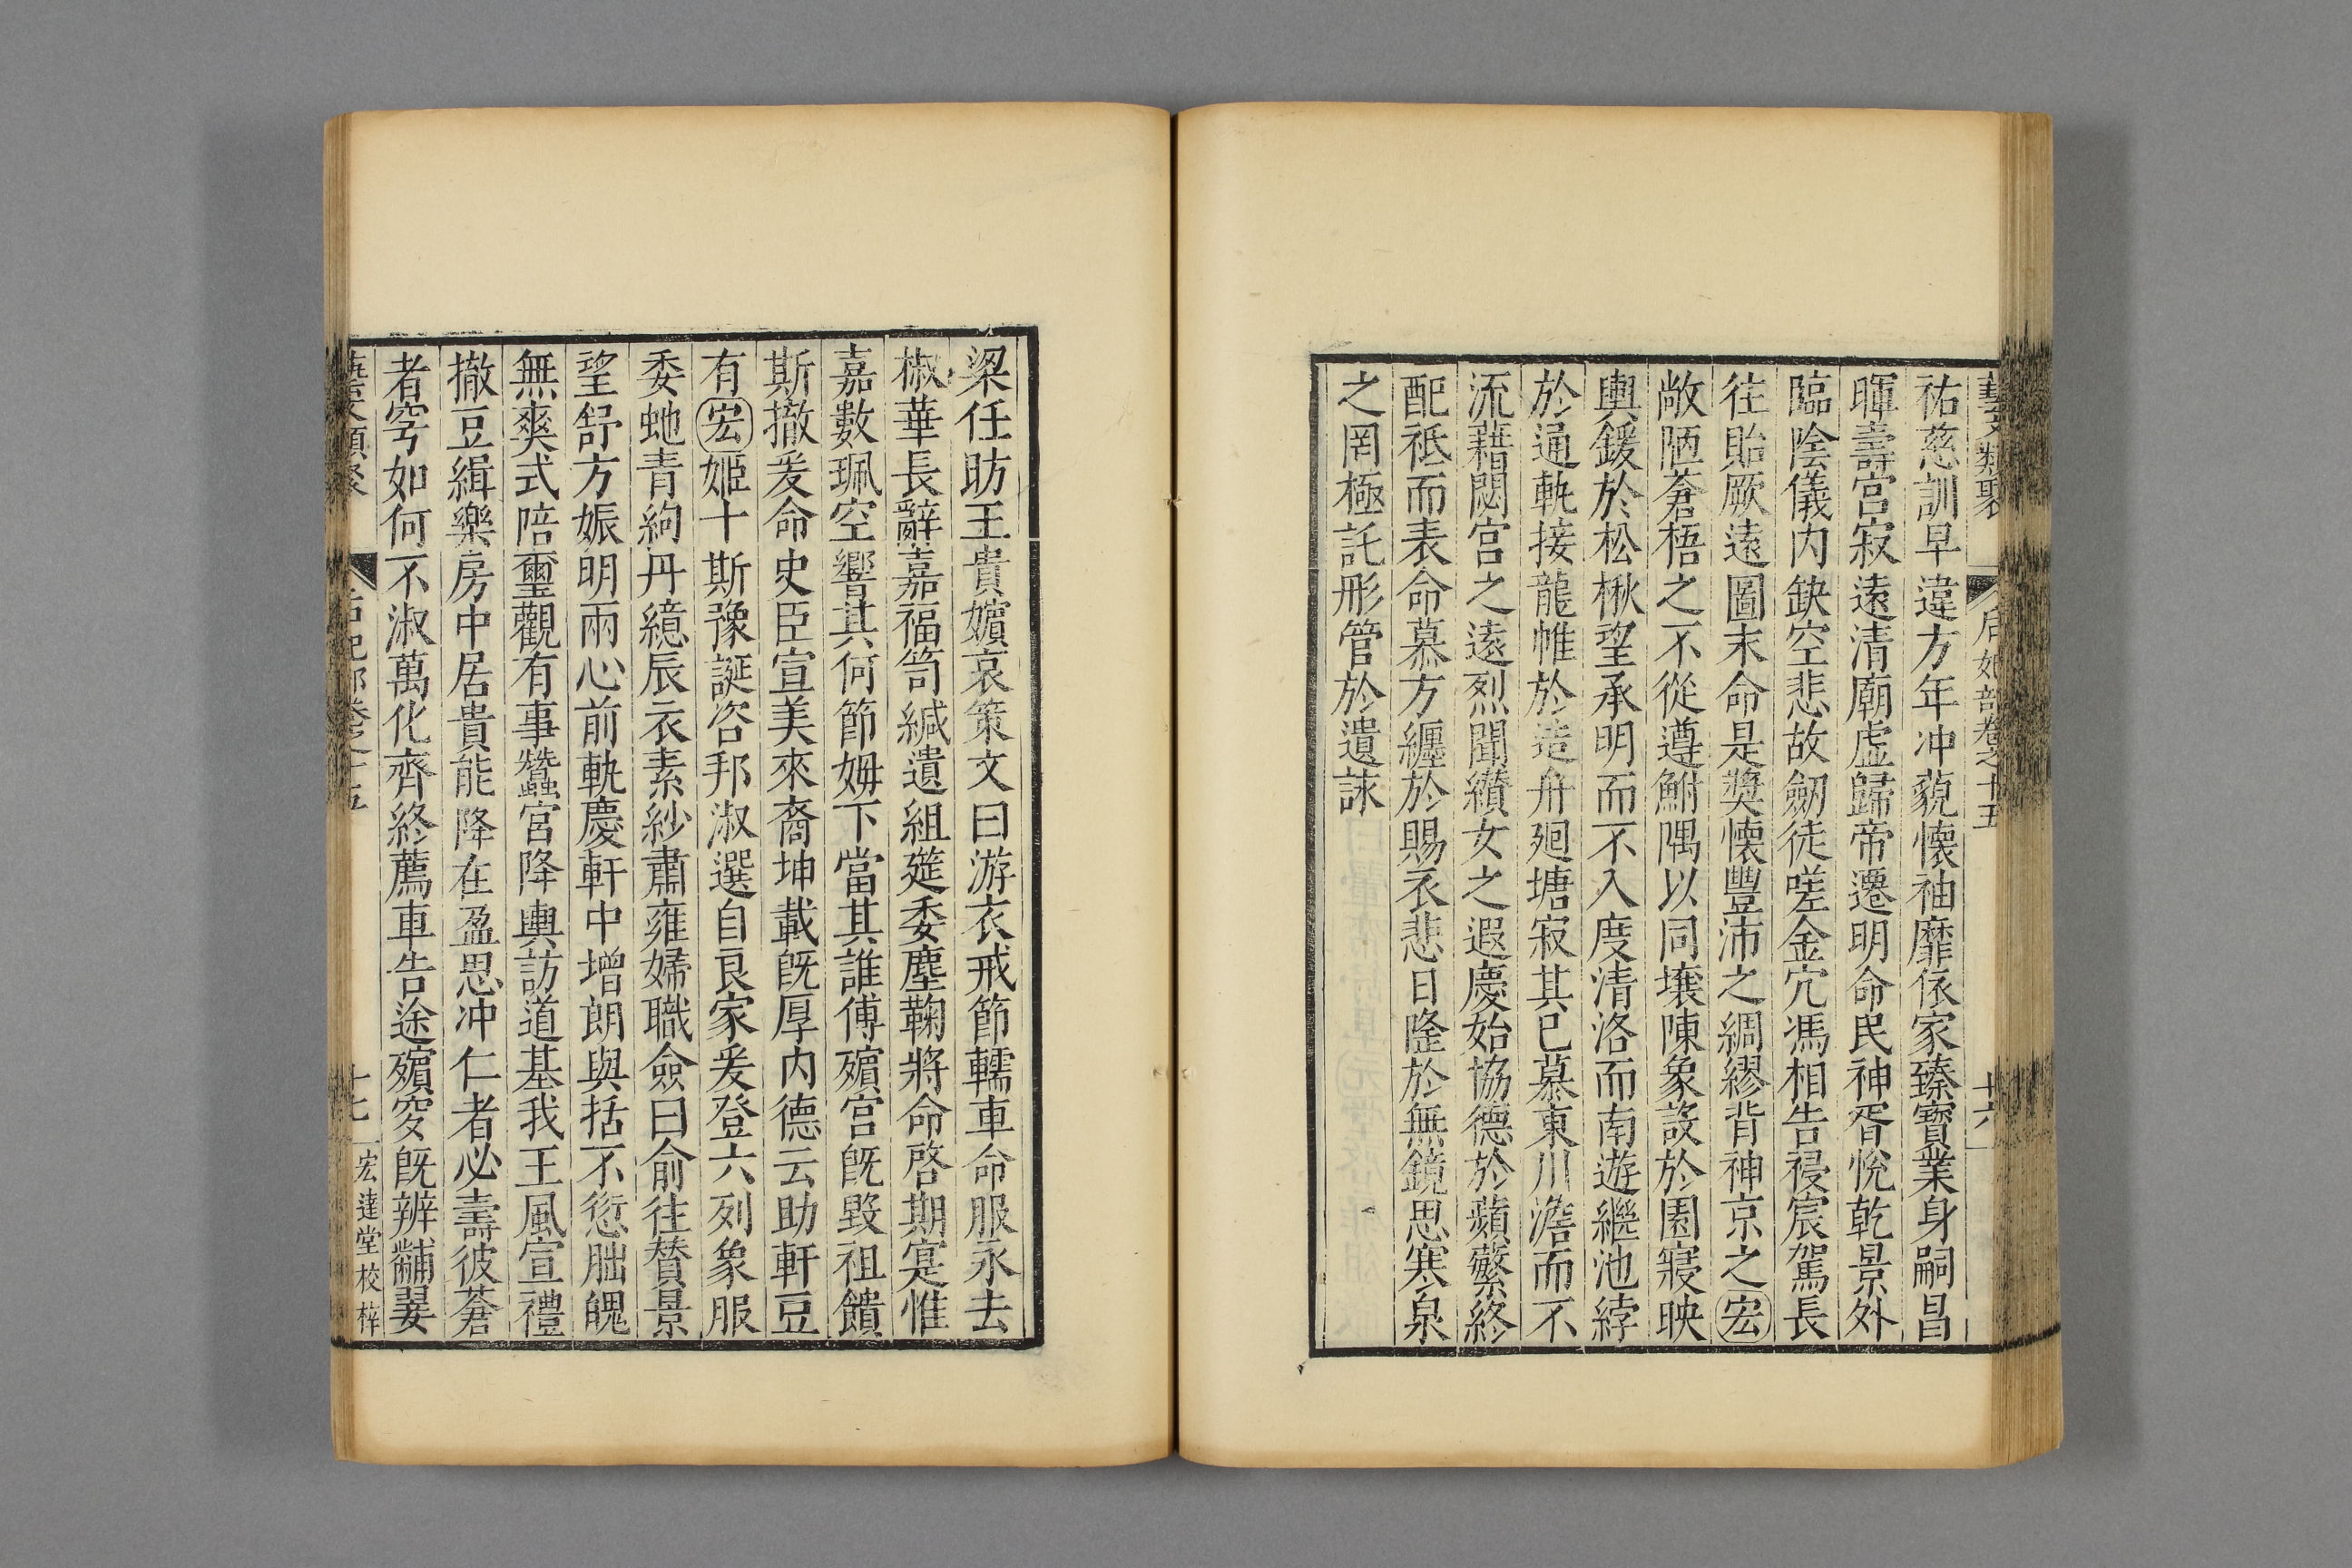 藝文類聚 后妃部卷之十五 十六
祐慈訓早違方年冲藐懷袖靡依家臻寳業身嗣昌
暉壽宫寂遠清廟虛歸帝遷明命民神胥悅乾景外
臨陰儀内缺空悲故劒徒嗟金穴馮相告祲宸駕長
往貽厥遠圖末命是奬懷豐沛之綢繆背神京之宏
敞陋蒼梧之不從遵鮒隅以同壤陳象設於園寢映
輿鍐於松楸望承明而不入度清洛而南遊繼池綍
於通軌接龍帷於造舟廻塘寂其已慕東川澹而不
流藉閟宫之遠烈聞纉女之遐慶始協德於蘋蘩終
配祗而表命慕方纏於賜衣悲日隆於無鏡思寒泉
之罔極託彤管於遺詠
梁任昉王貴嬪哀策文曰游衣戒節轜車命服永去
椒華長辭嘉福笥緘遺組筵委塵鞠將命啓期寔惟
嘉數珮空響其何節姆下當其誰傅殯宫旣毀祖饋
斯撤爰命史臣宣美來裔坤載旣厚内德云助軒豆
有宏姬十斯豫誕咨邦淑選自良家爰登六列象服
委虵青絇丹繶辰衣素紗肅雍婦職僉曰俞往贊景
望舒方娠明兩心前軌慶軒中增朗與括不愆朏魄
無爽式陪璽觀有事蠶宮降輿訪道基我王風宣禮
撤豆緝樂房中居貴能降在盈思冲仁者必壽彼蒼
者穹如何不淑萬化齊終薦車告途殯窆旣辨黼翣
藝文類聚 后妃部卷之十五 十七 宏達堂校梓